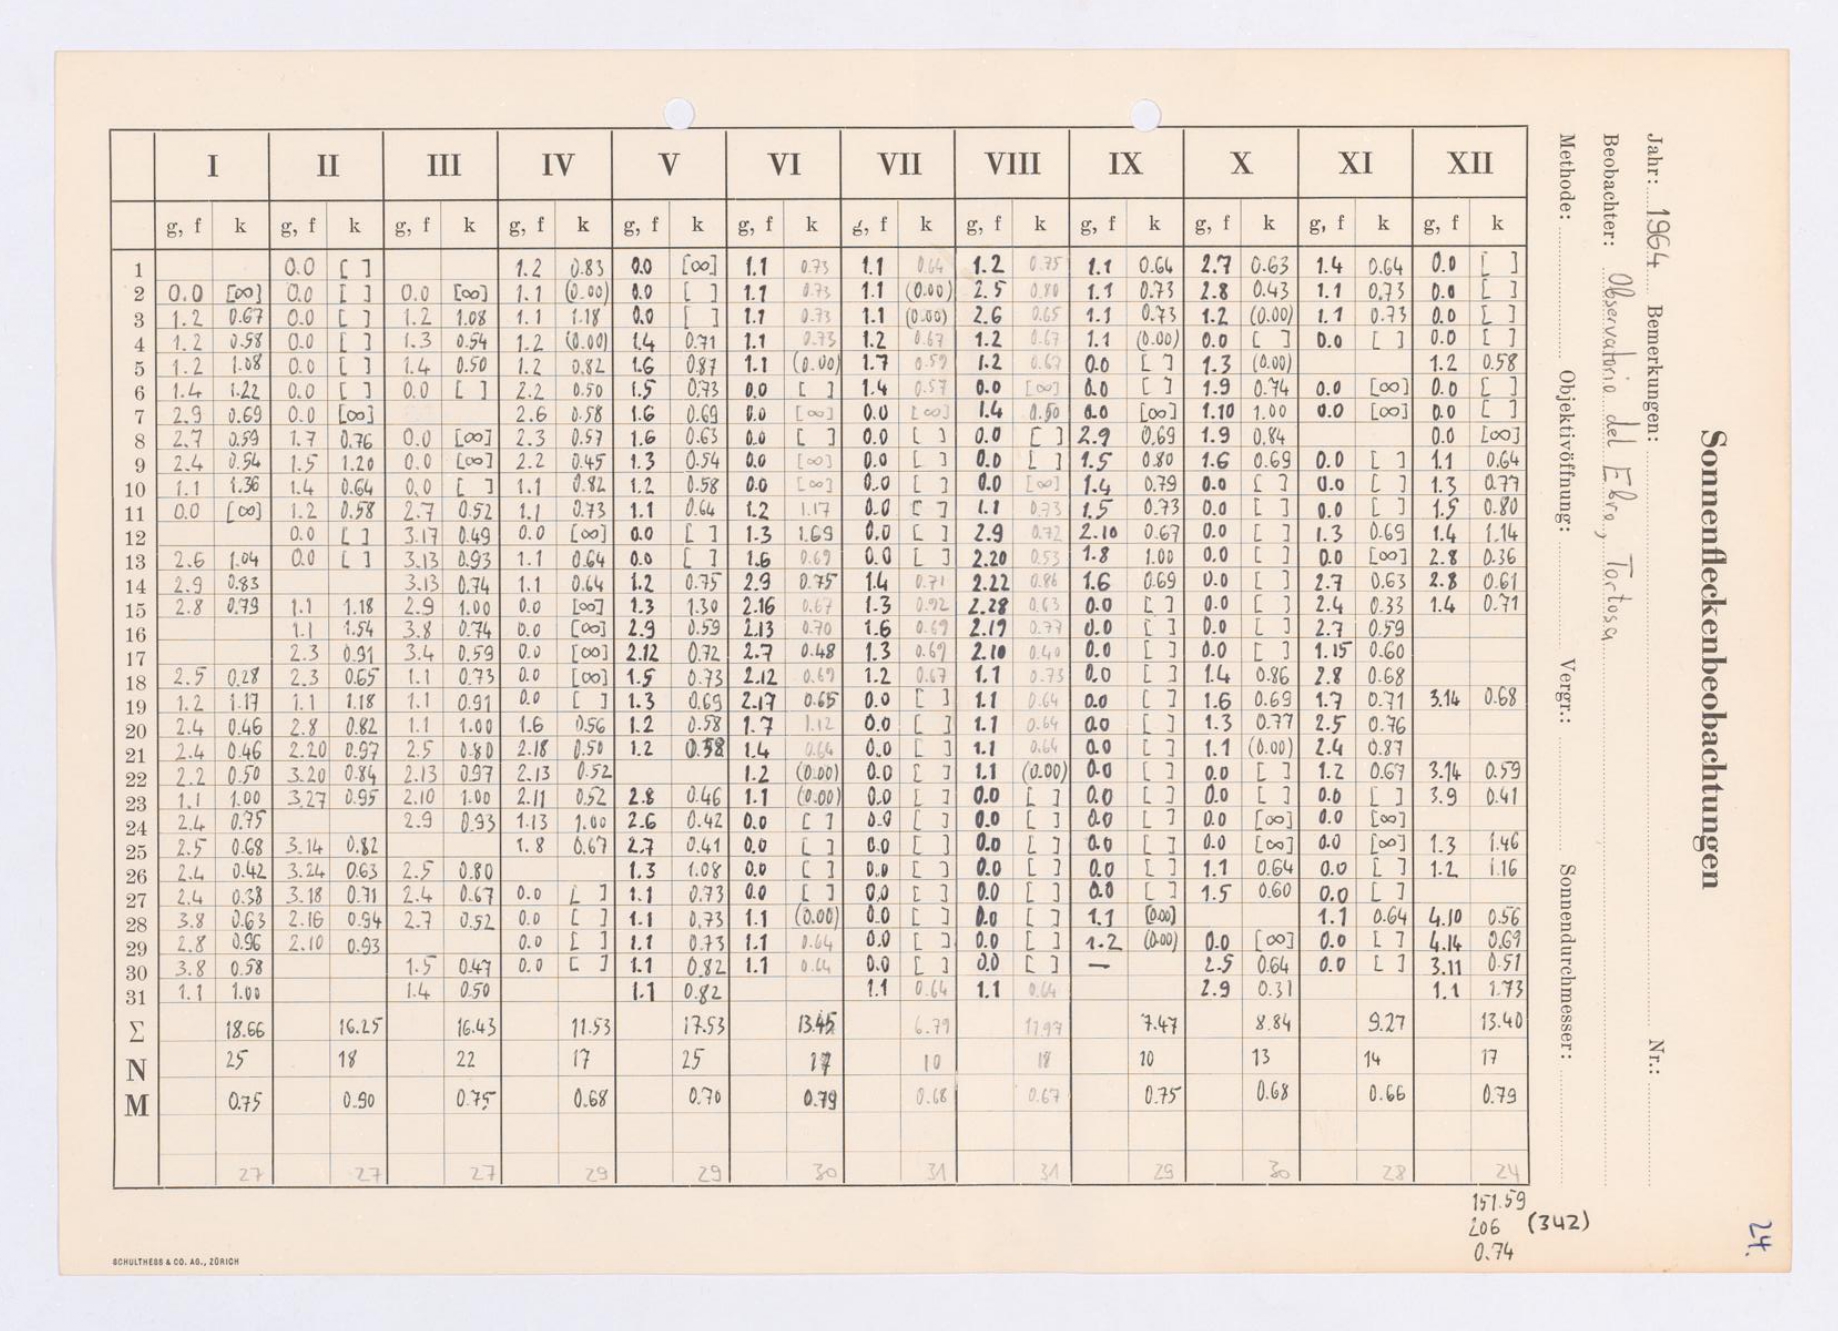 Sonnenfleckenbeobachtungen
Jahr: 1964 Bemerkungen: Nr.:
Beobachter: Observatorio del Ebro, Tortosa
Methode: Objektivöffnung: Vergr.: Sonnendurchmesser:
I II III IV V VI VII VIII IX X XI XII
g, f k g, f k g, f k g, f k g, f k g, f k g, f k g, f k g, f k g, f k g, f k g, f k
1 0.0 [ ] 1.2 0.83 0.0 [∞] 1.1 0.73 1.1 0.64 1.2 0.75 1.1 0.64 2.7 0.63 1.4 0.64 0.0 [ ]
2 0.0 [∞] 0.0 [ ] 0.0 [∞] 1.1 (0.00) 0.0 [ ] 1.1 0.73 1.1 (0.00) 2.5 0.80 1.1 0.73 2.8 0.43 1.1 0.73 0.0 [ ]
3 1.2 0.67 0.0 [ ] 1.2 1.08 1.1 1.18 0.0 [ ] 1.1 0.73 1.1 (0.00) 2.6 0.65 1.1 0.73 1.2 (0.00) 1.1 0.73 0.0 [ ]
4 1.2 0.58 0.0 [ ] 1.3 0.54 1.2 (0.00) 1.4 0.71 1.1 0.73 1.2 0.67 1.2 0.67 1.1 (0.00) 0.0 [ ] 0.0 [ ] 0.0 [ ]
5 1.2 1.08 0.0 [ ] 1.4 0.50 1.2 0.82 1.6 0.87 1.1 (0.00) 1.7 0.59 1.2 0.67 0.0 [ ] 1.3 (0.00) 1.2 0.58
6 1.4 1.22 0.0 [ ] 0.0 [ ] 2.2 0.50 1.5 0.73 0.0 [ ] 1.4 0.57 0.0 [∞] 0.0 [ ] 1.9 0.74 0.0 [∞] 0.0 [ ]
7 2.9 0.69 0.0 [∞] 2.6 0.58 1.6 0.69 0.0 [∞] 0.0 [∞] 1.4 0.50 0.0 [∞] 1.10 1.00 0.0 [∞] 0.0 [ ]
8 2.7 0.59 1.7 0.76 0.0 [∞] 2.3 0.57 1.6 0.63 0.0 [ ] 0.0 [ ] 0.0 [ ] 2.9 0.69 1.9 0.84 0.0 [∞]
9 2.4 0.54 1.5 1.20 0.0 [∞] 2.2 0.45 1.3 0.54 0.0 [∞] 0.0 [ ] 0.0 [ ] 1.5 0.80 1.6 0.69 0.0 [ ] 1.1 0.64
10 1.1 1.36 1.4 0.64 0.0 [ ] 1.1 0.82 1.2 0.58 0.0 [∞] 0.0 [ ] 0.0 [∞] 1.4 0.79 0.0 [ ] 0.0 [ ] 1.3 0.77
11 0.0 [∞] 1.2 0.58 2.7 0.52 1.1 0.73 1.1 0.64 1.2 1.17 0.0 [ ] 1.1 0.73 1.5 0.73 0.0 [ ] 0.0 [ ] 1.5 0.80
12 0.0 [ ] 3.17 0.49 0.0 [∞] 0.0 [ ] 1.3 1.69 0.0 [ ] 2.9 0.72 2.10 0.67 0.0 [ ] 1.3 0.69 1.4 1.14
13 2.6 1.04 0.0 [ ] 3.13 0.93 1.1 0.64 0.0 [ ] 1.6 0.69 0.0 [ ] 2.20 0.53 1.8 1.00 0.0 [ ] 0.0 [∞] 2.8 0.36
14 2.9 0.83 3.13 0.74 1.1 0.64 1.2 0.75 2.9 0.75 1.4 0.71 2.22 0.86 1.6 0.69 0.0 [ ] 2.7 0.63 2.8 0.61
15 2.8 0.79 1.1 1.18 2.9 1.00 0.0 [∞] 1.3 1.30 2.16 0.67 1.3 0.92 2.28 0.63 0.0 [ ] 0.0 [ ] 2.4 0.33 1.4 0.71
16 1.1 1.54 3.8 0.74 0.0 [∞] 2.9 0.59 2.13 0.70 1.6 0.69 2.19 0.77 0.0 [ ] 0.0 [ ] 2.7 0.59
17 2.3 0.91 3.4 0.59 0.0 [∞] 2.12 0.72 2.7 0.48 1.3 0.69 2.10 0.40 0.0 [ ] 0.0 [ ] 1.15 0.60
18 2.5 0.28 2.3 0.65 1.1 0.73 0.0 [∞] 1.5 0.73 2.12 0.69 1.2 0.67 1.1 0.73 0.0 [ ] 1.4 0.86 2.8 0.68
19 1.2 1.17 1.1 1.18 1.1 0.91 0.0 [ ] 1.3 0.69 2.17 0.65 0.0 [ ] 1.1 0.64 0.0 [ ] 1.6 0.69 1.7 0.71 3.14 0.68
20 2.4 0.46 2.8 0.82 1.1 1.00 1.6 0.56 1.2 0.58 1.7 1.12 0.0 [ ] 1.1 0.64 0.0 [ ] 1.3 0.77 2.5 0.76
21 2.4 0.46 2.20 0.97 2.5 0.80 2.18 0.50 1.2 0.58 1.4 0.64 0.0 [ ] 1.1 0.64 0.0 [ ] 1.1 (0.00) 2.4 0.87
22 2.2 0.50 3.20 0.84 2.13 0.97 2.13 0.52 1.2 (0.00) 0.0 [ ] 1.1 (0.00) 0.0 [ ] 0.0 [ ] 1.2 0.67 3.14 0.59
23 1.1 1.00 3.27 0.95 2.10 1.00 2.11 0.52 2.8 0.46 1.1 (0.00) 0.0 [ ] 0.0 [ ] 0.0 [ ] 0.0 [ ] 0.0 [ ] 3.9 0.41
24 2.4 0.75 2.9 0.93 1.13 1.00 2.6 0.42 0.0 [ ] 0.0 [ ] 0.0 [ ] 0.0 [ ] 0.0 [∞] 0.0 [∞]
25 2.5 0.68 3.14 0.82 1.8 0.67 2.7 0.41 0.0 [ ] 0.0 [ ] 0.0 [ ] 0.0 [ ] 0.0 [∞] 0.0 [∞] 1.3 1.46
26 2.4 0.42 3.24 0.63 2.5 0.80 1.3 1.08 0.0 [ ] 0.0 [ ] 0.0 [ ] 0.0 [ ] 1.1 0.64 0.0 [ ] 1.2 1.16
27 2.4 0.38 3.18 0.71 2.4 0.67 0.0 [ ] 1.1 0.73 0.0 [ ] 0.0 [ ] 0.0 [ ] 0.0 [ ] 1.5 0.60 0.0 [ ]
28 3.8 0.63 2.16 0.94 2.7 0.52 0.0 [ ] 1.1 0.73 1.1 (0.00) 0.0 [ ] 0.0 [ ] 1.1 (0.00) 1.1 0.64 4.10 0.56
29 2.8 0.96 2.10 0.93 0.0 [ ] 1.1 0.73 1.1 0.64 0.0 [ ] 0.0 [ ] 1.2 (0.00) 0.0 [∞] 0.0 [ ] 4.14 0.69
30 3.8 0.58 1.5 0.47 0.0 [ ] 1.1 0.82 1.1 0.64 0.0 [ ] 0.0 [ ] — 2.5 0.64 0.0 [ ] 3.11 0.51
31 1.1 1.00 1.4 0.50 1.1 0.82 1.1 0.64 1.1 0.64 2.9 0.31 1.1 1.73
Σ 18.66 16.25 16.43 11.53 17.53 13.45 6.79 11.97 7.47 8.84 9.27 13.40
N 25 18 22 17 25 17 10 18 10 13 14 17
M 0.75 0.90 0.75 0.68 0.70 0.79 0.68 0.67 0.75 0.68 0.66 0.79
27 27 27 29 29 30 31 31 29 30 28 24
151.59
206 (342)
0.74
24.
SCHULTHESS & CO. AG., ZÜRICH